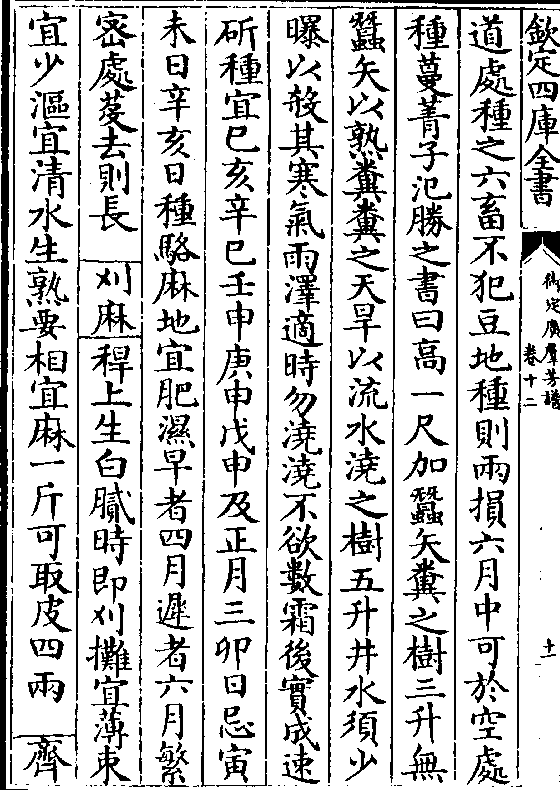 欽定四庫全書
御定廣羣芳譜
卷十二
十一
道處種之六畜不犯豆地種則兩損六月中可於空處
種蔓菁子氾勝之書曰高一尺加蠶矢糞之樹三升無
蠶矢以熟糞糞之天旱以流水澆之樹五升井水須少
曝以殺其寒氣雨澤適時勿澆澆不欲數霜後實成速
斫種宜巳亥辛巳壬申庚申戊申及正月三卯日忌寅
未日辛亥日種駱麻地宜肥濕早者四月遲者六月繁
密處芟去則長 刈麻 稈上生白膩時即刈攤宜薄束
宜少漚宜清水生熟要相宜麻一斤可取皮四兩 齊